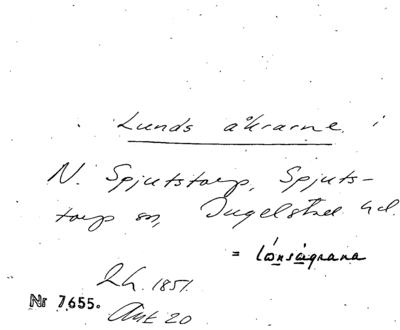 Lunds åkrarne i
N. Spjutstorp, Spjuts-
torp sn, Ingelstad hd.
= lånságrana
Lh. 1851.
Nr 7655.
Akt 20